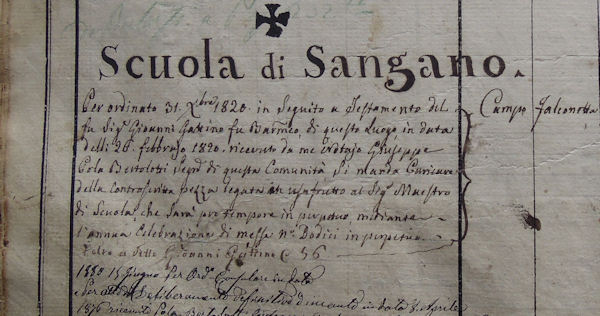 Scuola di Sangano.
Per ordinato 31. Xbre 1820. in Seguito a Testamento del
fu Sigr Giovanni Gattino fu Barmeo, di questo luogo in data
delli 26. febbrajo 1820. ricevuto da me Notajo Giuseppe
Cola Bertolotti Segro di questa Comunità Si manda Caricare
della Controscritta pezza legata in usufrutto al Sigr Maestro
di Scuola, che Sarà pro tempore in perpetuo mediante
l'annua Celebrazione di messe no. Dodici in perpetuo.
Giovanni Gattino C 56
Campo Falconetta
1880 15 Giugno Per in data
deliberamento d'incanto in data 8. Aprile
1876 ricevuto Cola